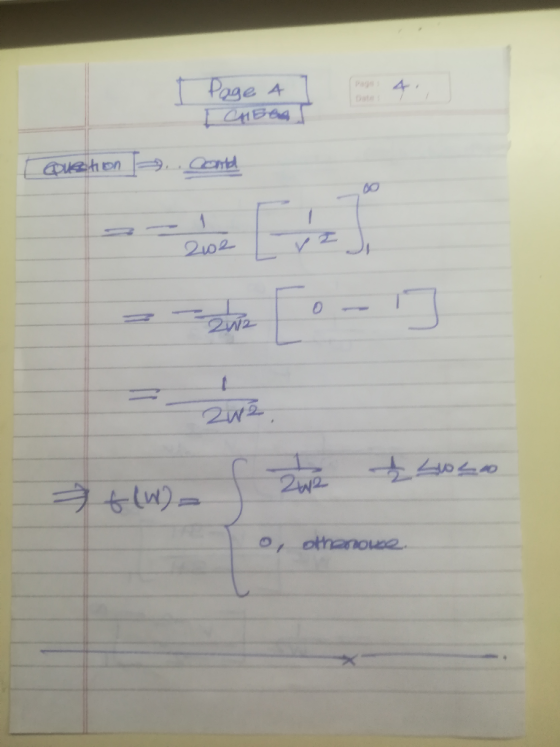 Page 4
Page: 4.
Date:
Question ⇒ .. Contd
= - 1/2w² [1/v²]₁^∞
= - 1/2w² [0 - 1]
= 1/2w².
⇒ f(w) = { 1/2w² 1/2 ≤ w ≤ ∞
0, otherwise.